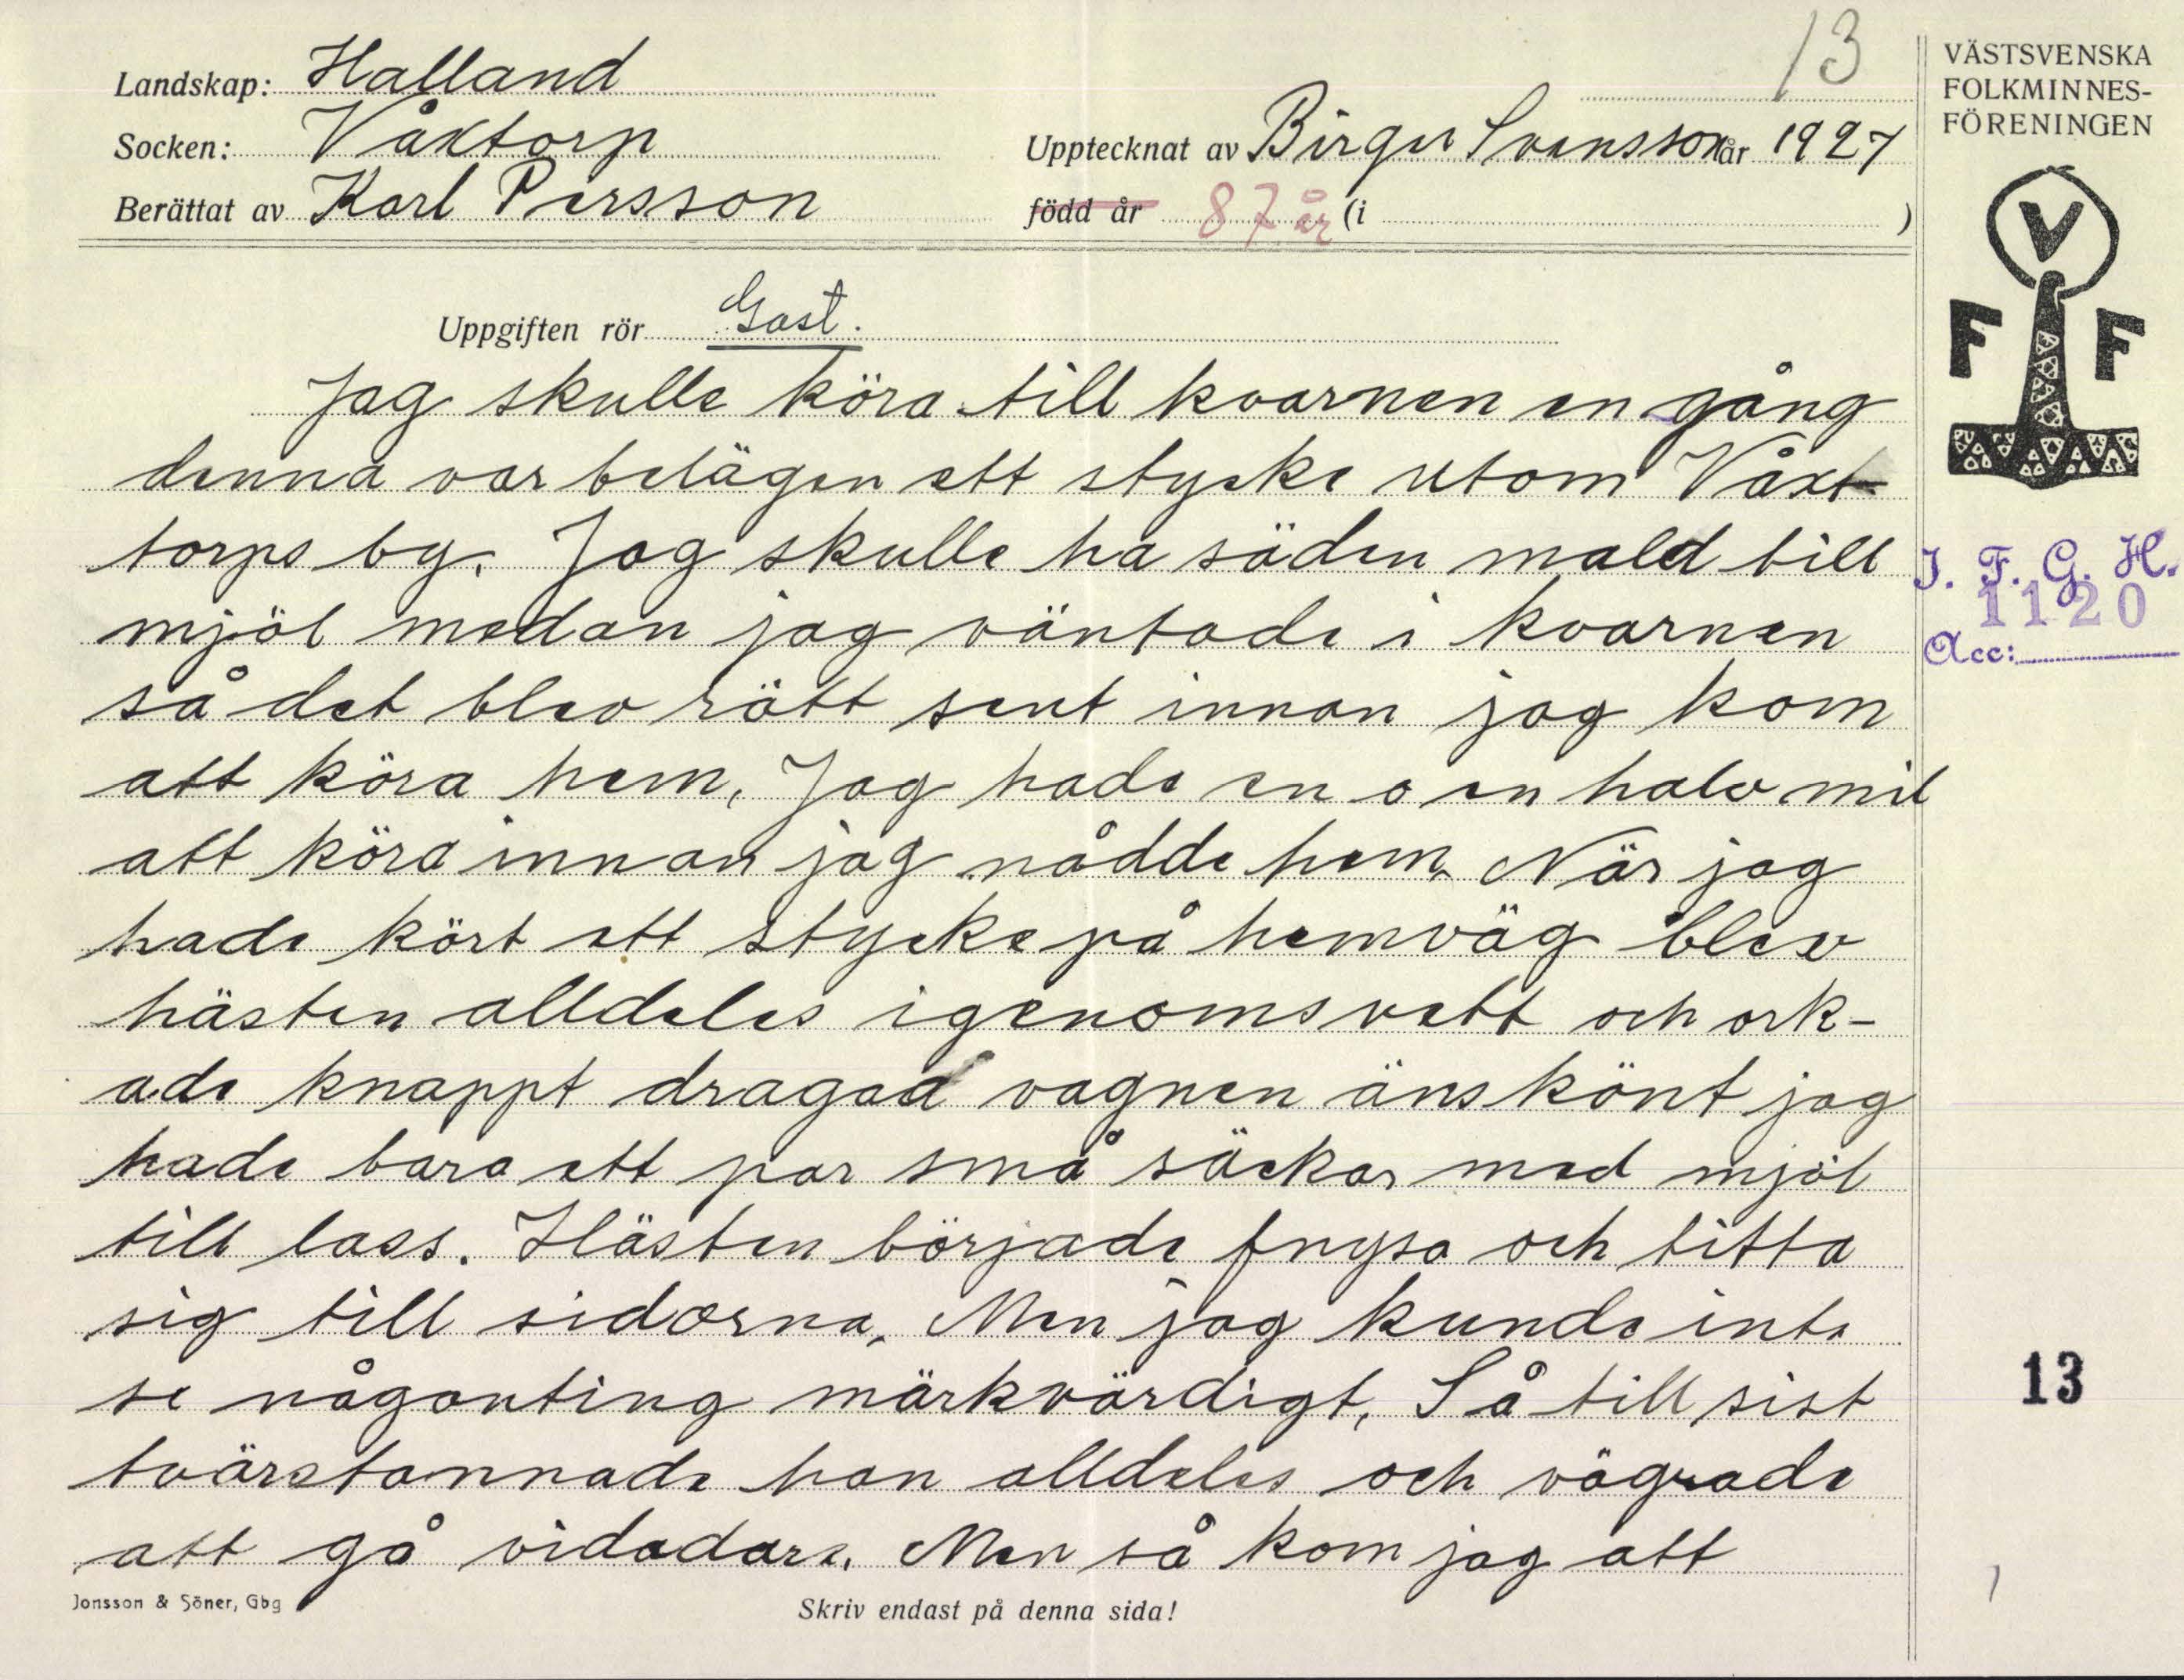 13
Landskap: Halland
Socken: Våxtorp
Upptecknat av Birger Svensson år 1927
Berättat av Karl Persson
född år 87 år (i )
VÄSTSVENSKA
FOLKMINNES-
FÖRENINGEN
V
F F
Uppgiften rör Gast.
Jag skulle köra till kvarnen en gång
denna var belägen ett stycke utom Våxt
torps by. Jag skulle ha säden mald till
mjöl medan jag väntade i kvarnen
så det blev rätt sent innan jag kom
att köra hem. Jag hade en o en halv mil
att köra innan jag nådde hem. När jag
hade kört ett stycke på hemväg blev
hästen alldeles igenomsvett och ork-
ade knappt dragad vagnen änskönt jag
hade bara ett par små säckar med mjöl
till lass. Hästen började fnysa och titta
sig till sidorna. Men jag kunde inte
se någonting märkvärdigt. Så till sist
tvärstannade han alldeles och vägrade
att gå vidadare. Men så kom jag att
J. F. G. H.
1120
Acc:
13
1
Jonsson & Söner, Gbg
Skriv endast på denna sida!